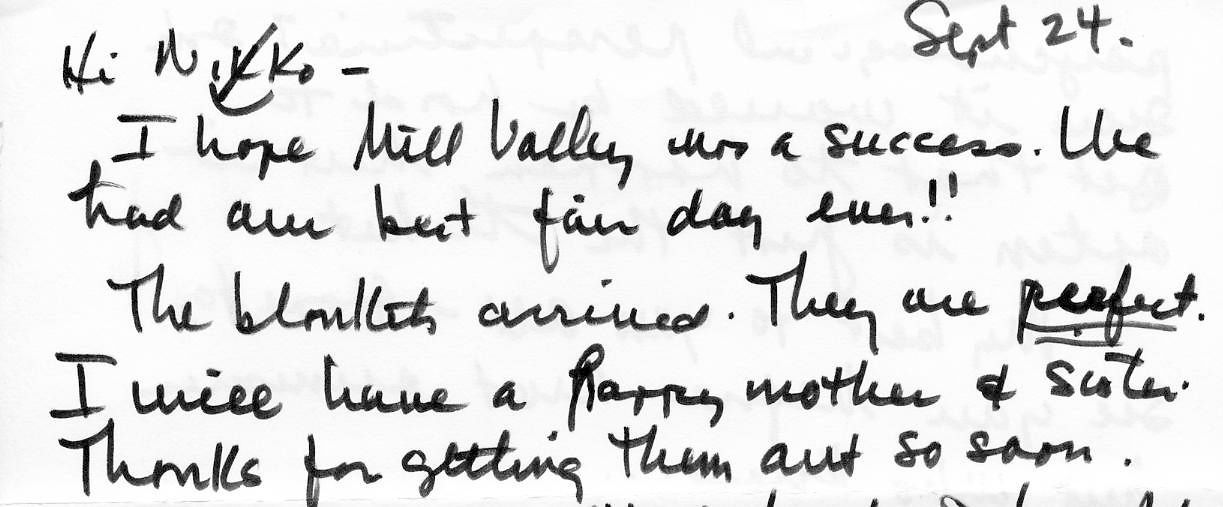 Sept 24.
Hi Nikko -
I hope Mill Valley was a success. We
had our best fair day ever!!
The blankets arrived. They are perfect.
I will have a happy mother & sister.
Thanks for getting them out so soon.